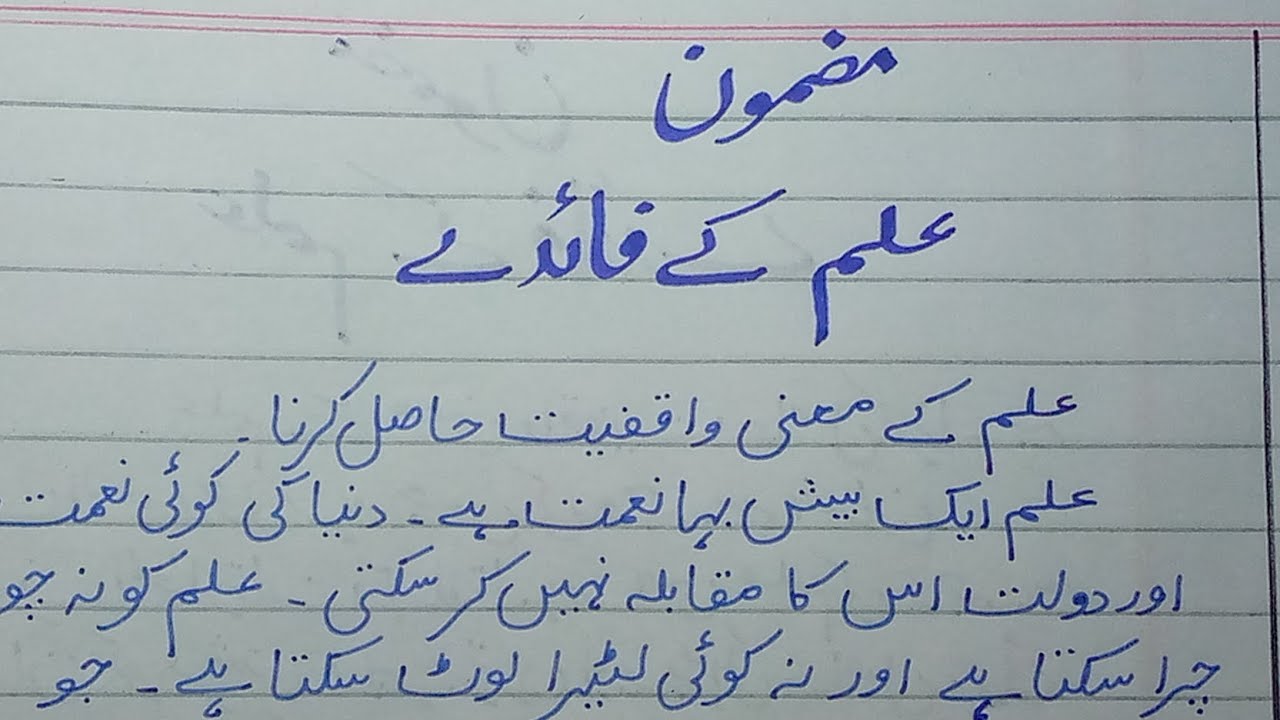 مضمون
علم کے فائدے
علم کے معنی واقفیت حاصل کرنا۔
علم ایک بیش بہا نعمت ہے۔ دنیا کی کوئی نعمت
اور دولت اس کا مقابلہ نہیں کر سکتی۔ علم کو نہ چو
چرا سکتا ہے اور نہ کوئی لٹیرا لوٹ سکتا ہے۔ جو